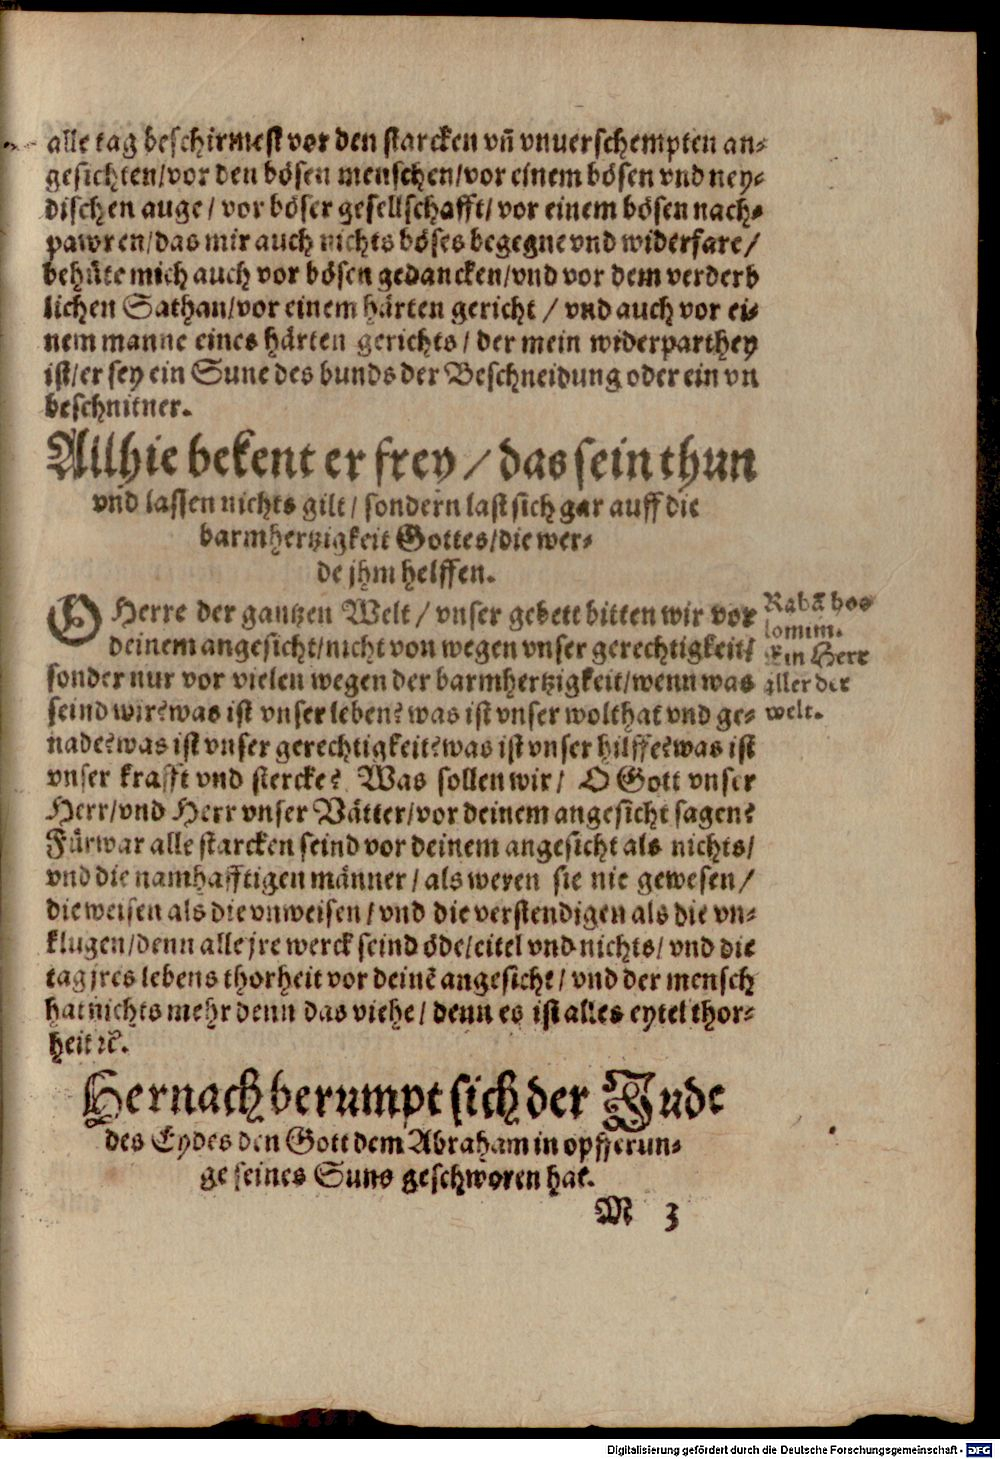 alle tag beschirmest vor den starcken vñ vnuerschempten an-
gesichten/vor den bösen menschen/vor einem bösen vnd ney-
dischen auge/ vor böser gesellschafft/ vor einem bösen nach-
pawren/das mir auch nichts böses begegne vnd widerfare/
behüte mich auch vor bösen gedancken/vnd vor dem verderb
lichen Sathan/vor einem härten gericht / vnd auch vor ei-
nem manne eines härten gerichts/ der mein widerparthey
ist/er sey ein Sune des bunds der Beschneidung oder ein vn
beschnitner.
Allhie bekent er frey / das sein thun
vnd lassen nichts gilt/ sondern last sich gar auff die
barmhertzigkeit Gottes/die wer-
de jhm helffen.
O Herre der gantzen Welt/ vnser gebett bitten wir vor
deinem angesicht/nicht von wegen vnser gerechtigkeit/
sonder nur vor vielen wegen der barmhertzigkeit/wenn was
seind wir? was ist vnser leben? was ist vnser wolthat vnd ge-
nade? was ist vnser gerechtigkeit? was ist vnser hilffe? was ist
vnser krafft vnd stercke? Was sollen wir/ O Gott vnser
Herr/vnd Herr vnser Vätter/vor deinem angesicht sagen?
Fürwar alle starcken seind vor deinem angesicht als nichts/
vnd die namhafftigen männer/ als weren sie nie gewesen/
die weisen als die vnweisen/ vnd die verstendigen als die vn-
klugen/denn alle jre werck seind öde/eitel vnd nichts/ vnd die
tag jres lebens thorheit vor deinẽ angesicht/ vnd der mensch
hat nichts mehr denn das viehe/ denn es ist alles eytel thor-
heit ꝛc.
Rabã hoo
lomim.
Ein Herr
aller der
welt.
Hernach berumpt sich der Jude
des Eydes den Gott dem Abraham in opfferun-
ge seines Suns geschworen hat.
M 3
Digitalisierung gefördert durch die Deutsche Forschungsgemeinschaft - DFG